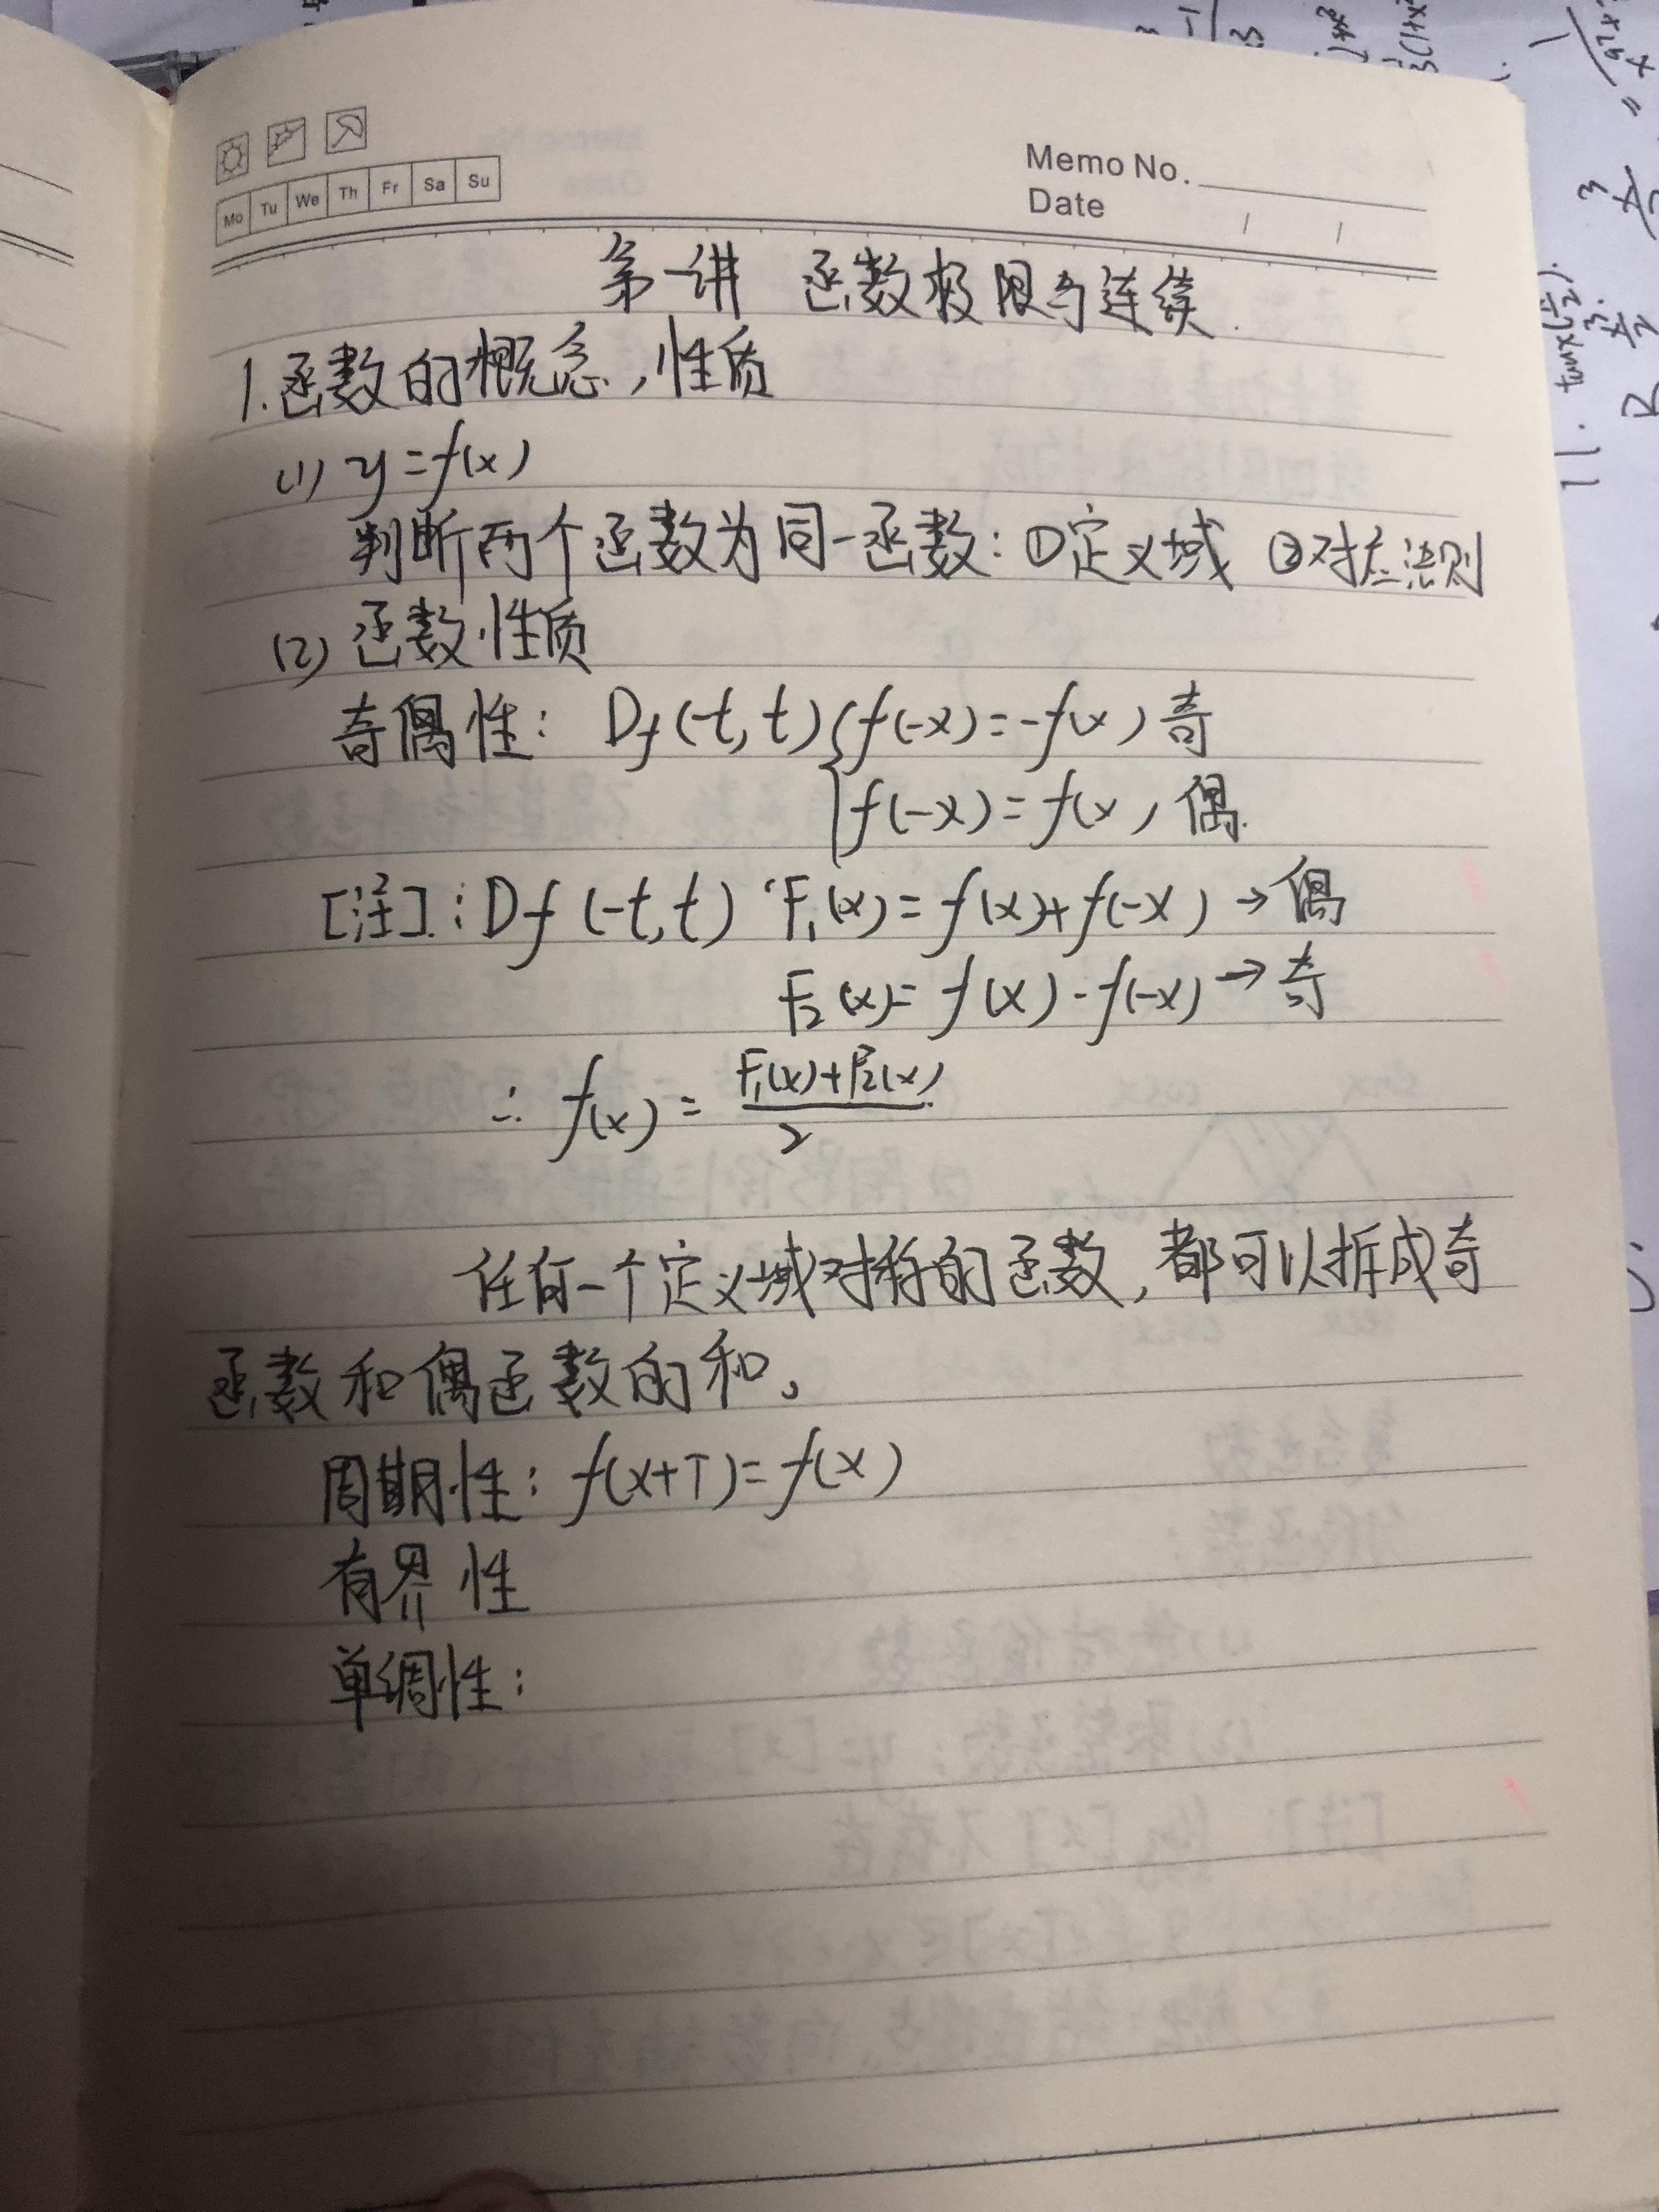 Mo Tu We Th Fr Sa Su
Memo No.
Date / /
第一讲 函数极限与连续.
1.函数的概念,性质
(1) y=f(x)
判断两个函数为同一函数:①定义域 ②对应法则
(2) 函数性质
奇偶性: Df(-t,t) { f(-x)=-f(x) 奇
f(-x)=f(x) 偶.
[注]: Df (-t,t) F₁(x)=f(x)+f(-x) → 偶
F₂(x)=f(x)-f(-x) → 奇
∴ f(x) = (F₁(x)+F₂(x))/2
任何一个定义域对称的函数,都可以拆成奇
函数和偶函数的和。
周期性: f(x+T)=f(x)
有界性
单调性: